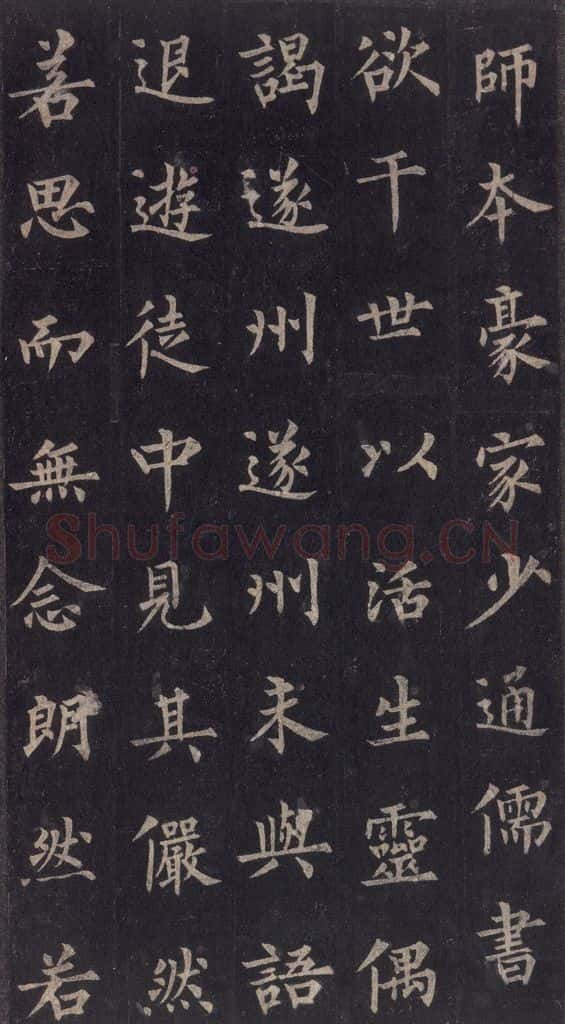 師本豪家少通儒書
欲干世以活生靈偶
謁遂州遂州未與語
退遊徒中見其儼然
若思而無念朗然若
Shufawang.CN